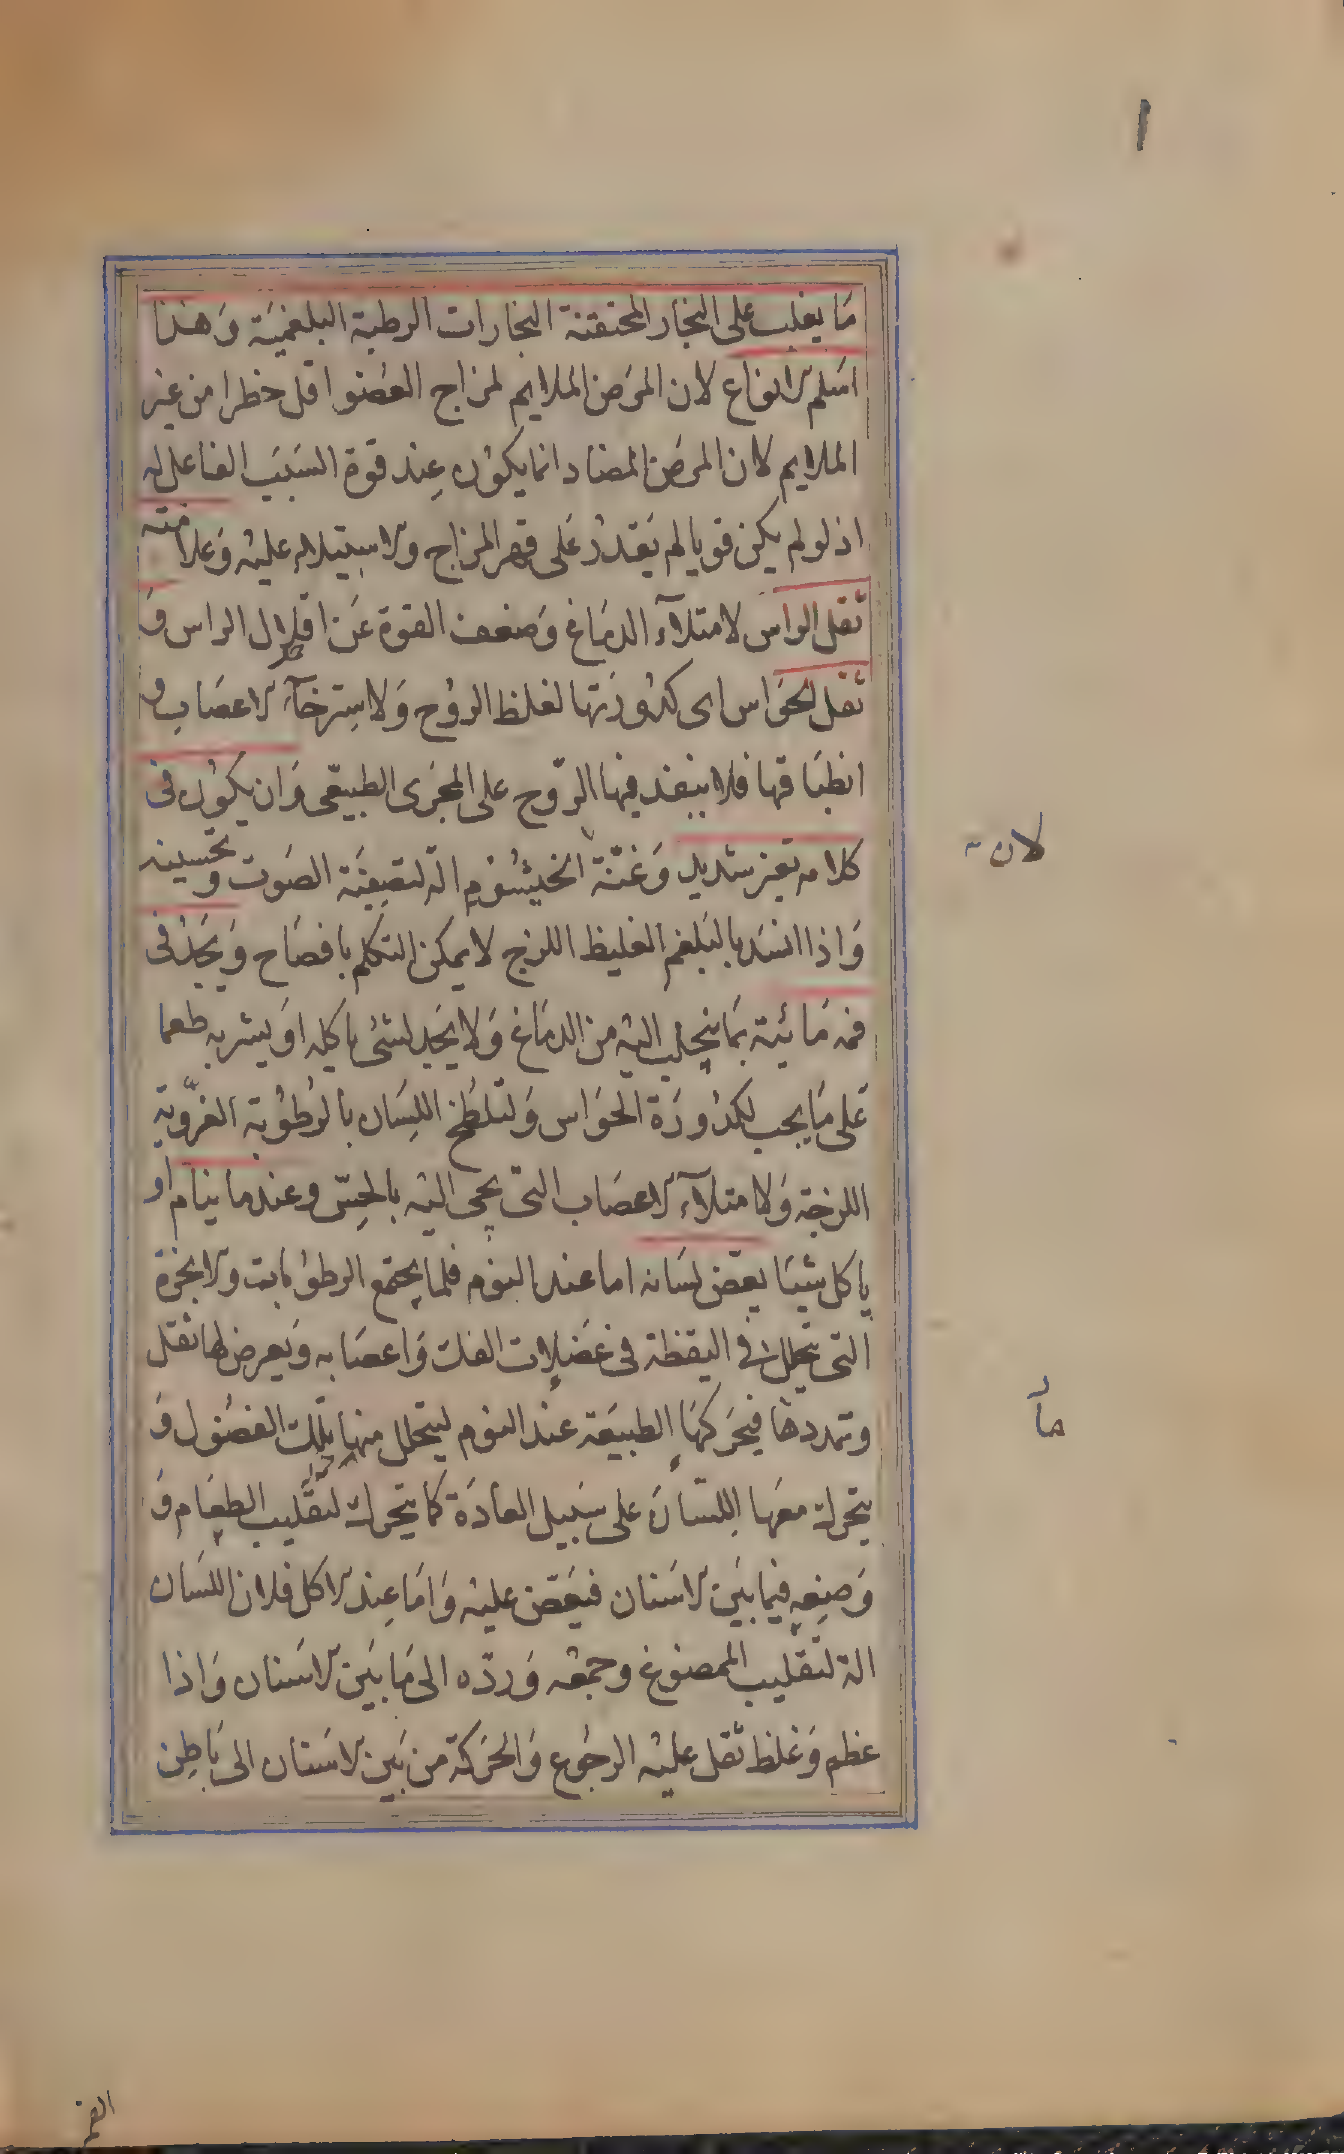 ١
ما يغلب على البخار المحتقنة البخارات الرطبة البلغمية وهذا
اسلم الانواع لان المرض الملايم لمزاج العضو اقل خطرا من غير
الملايم لان المرض المضاد انما يكون عند قوة السبب الفاعل له
اذ لو لم يكن قويا لم يقدر على قهر المزاج والاستيلاء عليه وعلامته
ثقل الراس لامتلاء الدماغ وضعف القوة عن اقلال الراس و
ثقل الحواس اى كدورتها لغلظ الروح ولاسترخاء الاعصاب و
انطباقها فلا ينفذ فيها الروح على المجرى الطبيعى وان يكون فى
كلامه تغير شديد وغنّة الخيشوم الة لتصفية الصوت وتحسينه
لان
واذا انسد بالبلغم الغليظ اللزج لا يمكن التكلم بافصاح ويجد فى
فمه مائية بما ينجلب اليه من الدماغ ولا يجد لشئ ياكله او يشربه طعما
على ما يجب لكدورة الحواس ولتلطخ اللسان بالرطوبة الغروية
اللزجة ولامتلاء الاعصاب التى يجى اليه بالحس وعندما ينام او
ياكل شيئا يعض لسانه اما عند النوم فلما يجتمع الرطوبات والابخرة
التى يتحلل فى اليقظة فى عضلات الفك واعصابه ويعرض لها ثقل
وتمددها فيحركها الطبيعة عند النوم ليتحلل منها تلك الفضول و
ما
يتحرك معها اللسان على سبيل العادة كما يتحرك لتقليب الطعام و
وضعه فيما بين الاسنان فيعض عليه واما عند الاكل فلان اللسان
الة لتقليب الممضوغ وجمعه وردّه الى ما بين الاسنان واذا
عظم وغلظ ثقل عليه الرجوع والحركة من بين الاسنان الى باطن
الفم